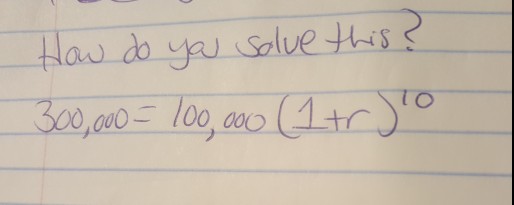 How do you solve this?
300,000 = 100,000 (1+r)^10